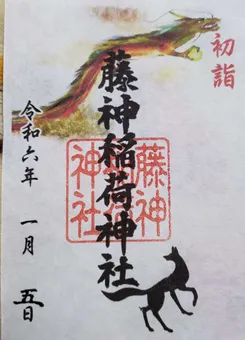 初詣
藤神稲荷神社
藤神
神社
令和六年 一月 五日